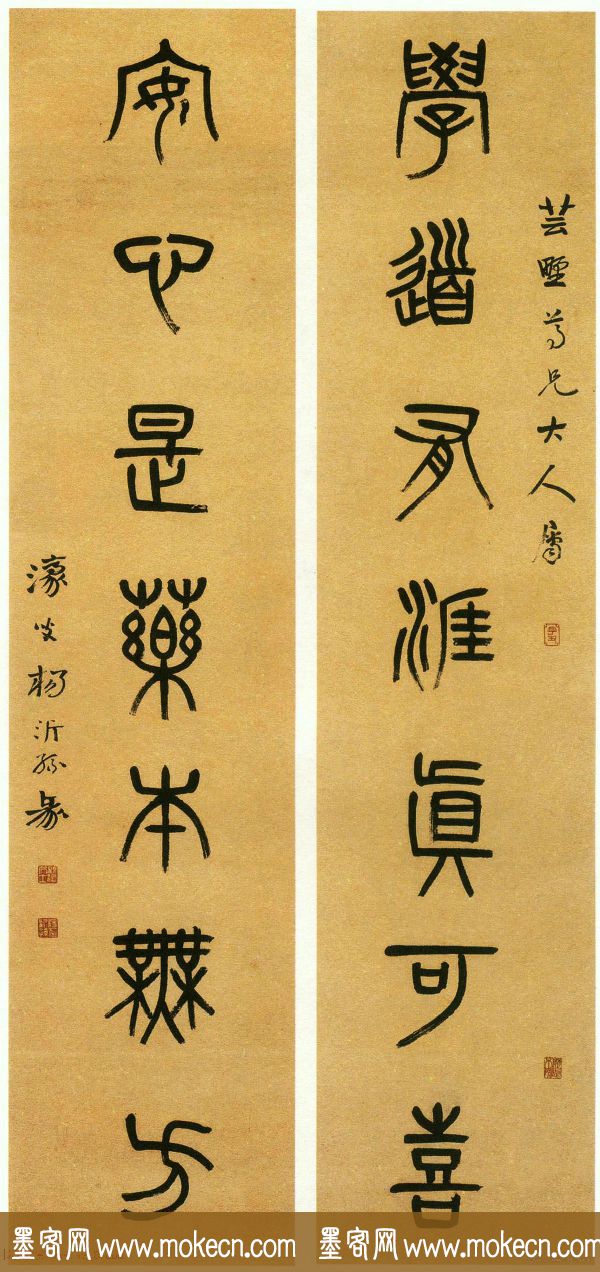 芸畦尊兄大人屬
學道有涯眞可喜
安心是藥本無方
濠叟楊沂孫篆
墨客网 www.mokecn.com
墨客网 www.mokecn.com